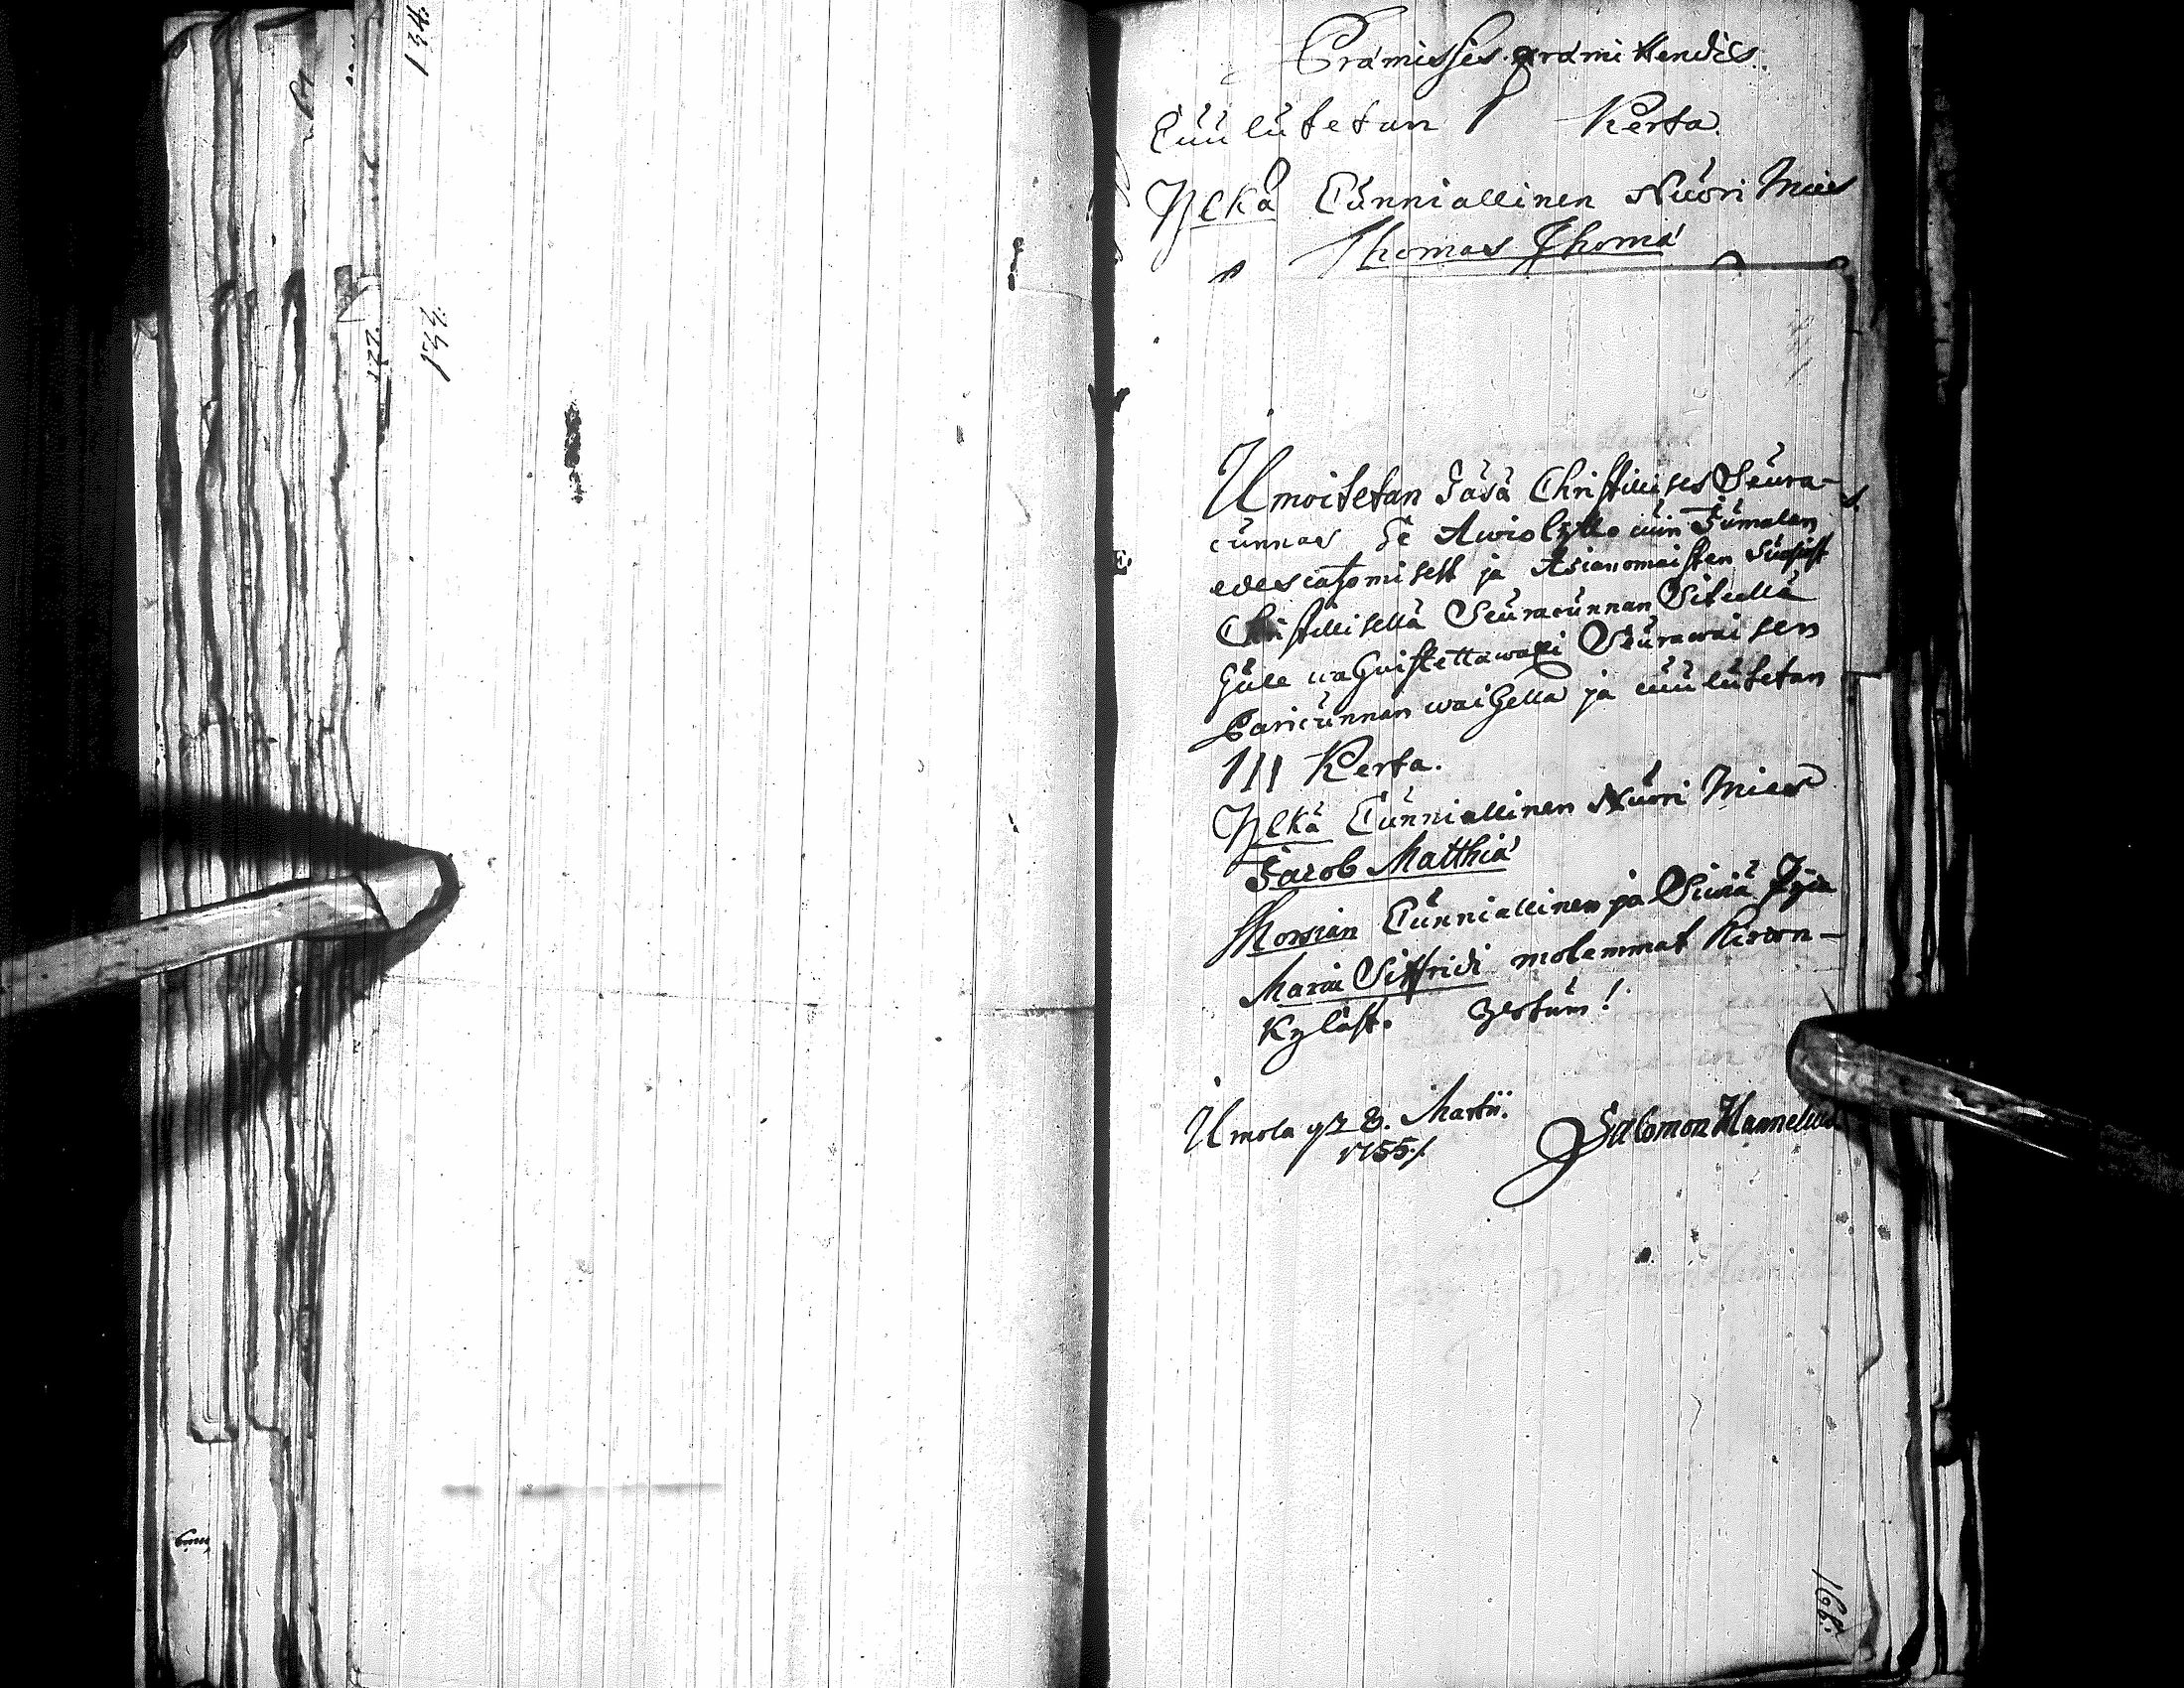 134.
61
177.
133.
Præmissis præmittendis.
Cuulutetan I Kerta.
Ylkä Cunniallinen Nuori Mies
Thomas Thomæ
Ilmoitetan täsä Christillises Seura-
cunnas se Awiokytto cuin Jumalan
edescatzomisest ja Asianomaisten suosiost
Christillisellä Seuracunnan Siteellä
tule wahwistettawaxi Seurawaisen
Pariscunnan waihella ja cuulutetan
III Kerta.
Ylkä Cunniallinen Nuori Mies
Jacob Matthiæ
Morsian Cunniallinen ja Siwiä Pijca
Maria Sigfridi molemmat Kirron-
Kyläst. Testum!
Ilmola p 8. Martii.
1755./.
Salomon Hannelius
166.